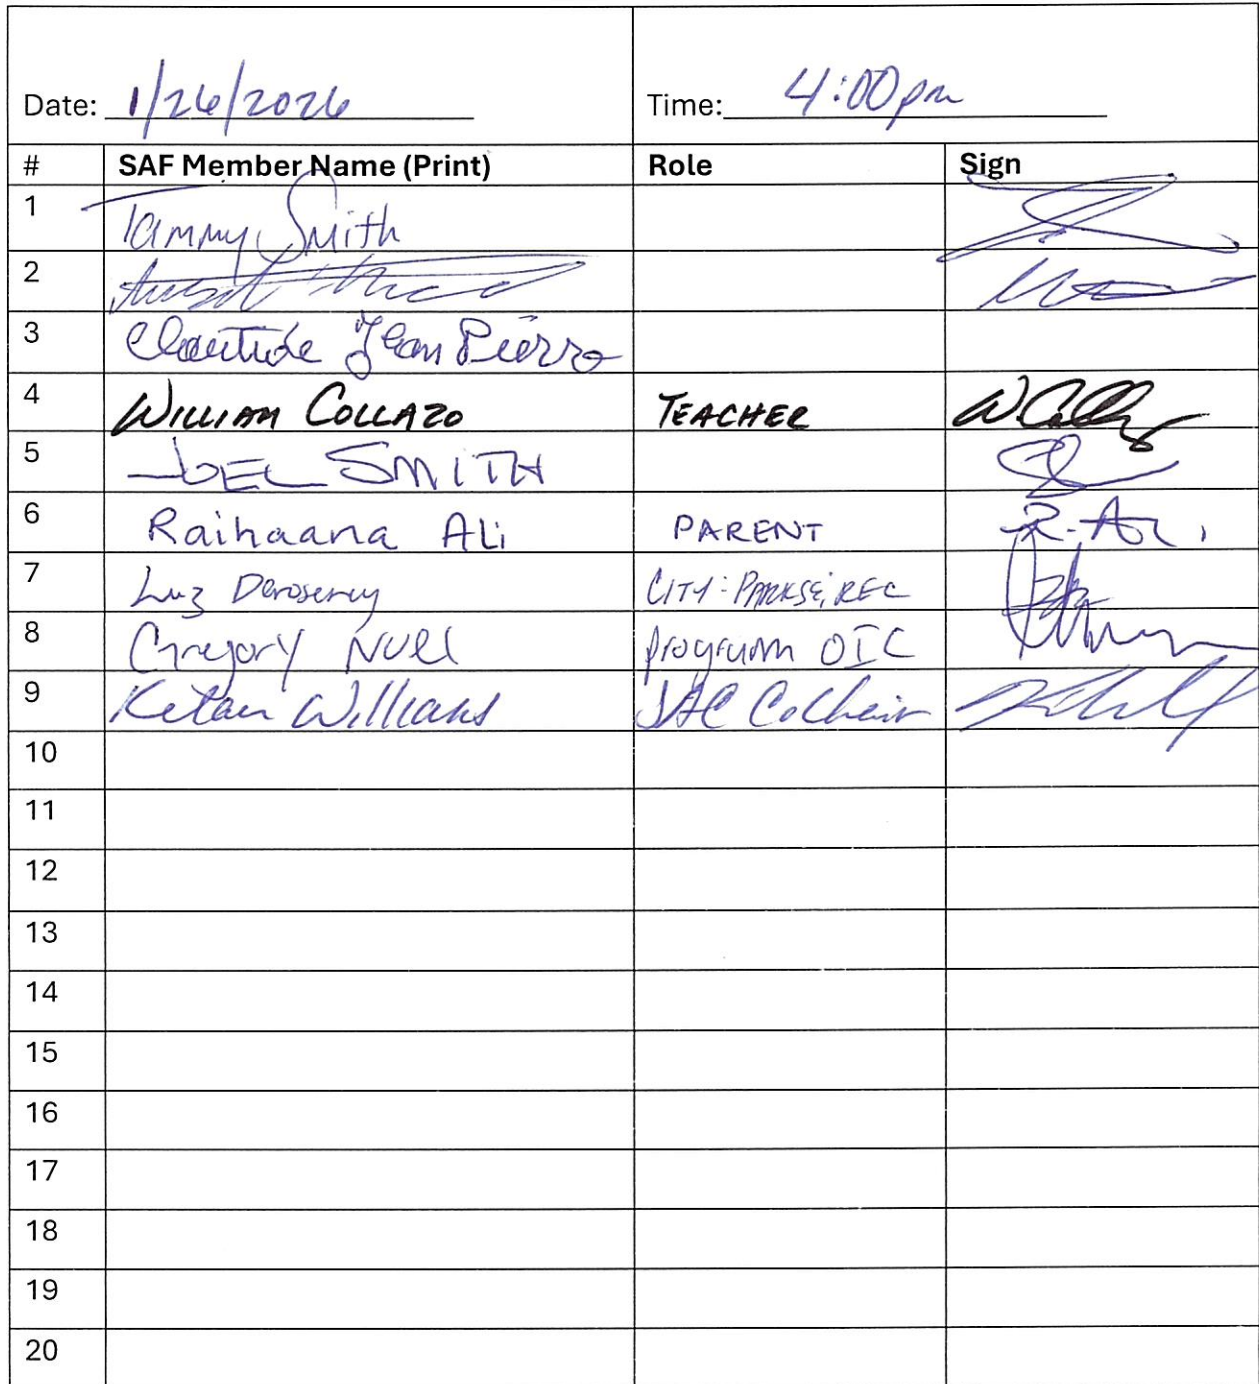 Date: 1/26/2026 Time: 4:00pm
# SAF Member Name (Print) Role Sign
1 Tammy Smith
2
3 Jean Pierre
4 WILLIAM COLLAZO TEACHER
5 JOEL SMITH
6 Raihaana ALi PARENT R. Ali
7 Luz CITY: PARKS & REC
8 Gregory program OIC
9 Williams SAC CoChair
10
11
12
13
14
15
16
17
18
19
20